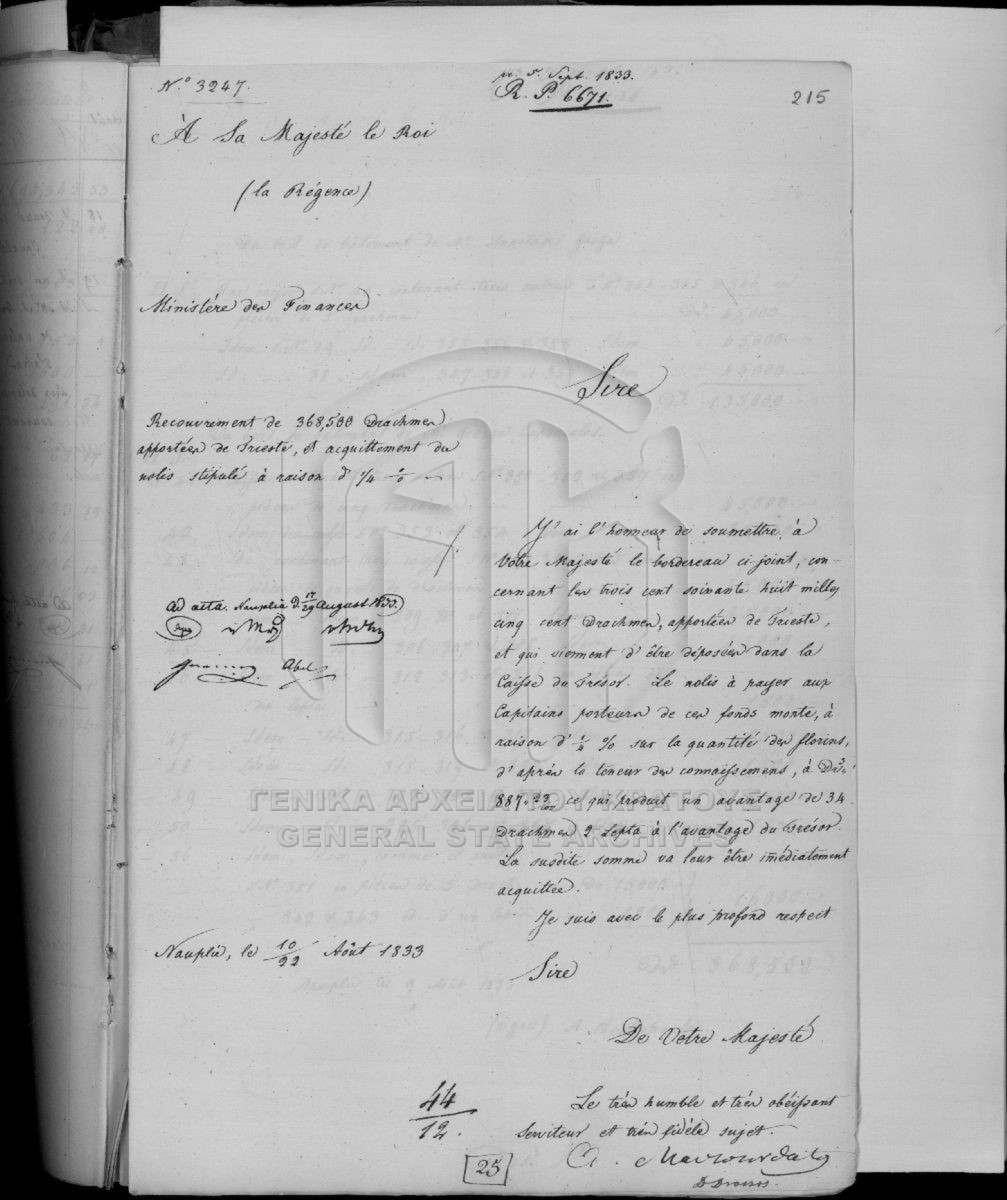 N.º 3247.
pr. 5. Sept. 1833.
R. P. 6671.
215
À Sa Majesté le Roi
(la Régence)
Ministère des Finances
Sire
Recouvrement de 368,500 Drachmes
apportées de Trieste, et acquittement du
nolis stipulé à raison d' 1/4 %
J'ai l'honneur de soumettre à
Votre Majesté le bordereau ci-joint, con-
cernant les trois cent soixante huit mille
cinq cent Drachmes, apportées de Trieste,
et qui viennent d'être déposées dans la
Caisse du Trésor. Le nolis à payer aux
Capitains porteurs de ces fonds monte, à
raison d' 1/4 % sur la quantité des florins,
d'après la teneur des connaissemens, à
887 ce qui produit un avantage de 34
Drachmes 2 Lepta à l'avantage du Trésor.
La susdite somme va leur être immédiatement
acquittée.
Je suis avec le plus profond respect
Ad acta. Nauplia d. 17/29 August 1833.
Abel
Nauplie, le 10/22 Août 1833
Sire
De Votre Majesté
Le très humble et très obéissant
serviteur et très fidèle sujet.
44
12.
25
ΓΕΝΙΚΑ ΑΡΧΕΙΑ ΤΟΥ ΚΡΑΤΟΥΣ
GENERAL STATE ARCHIVES